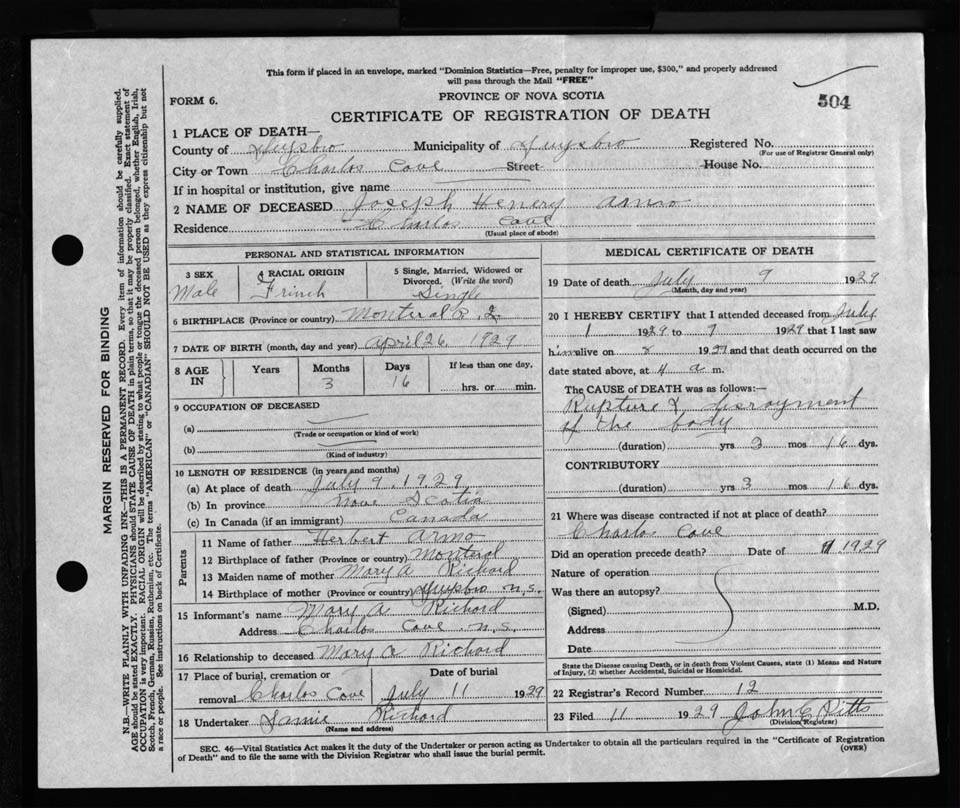 This form if placed in an envelope, marked "Dominion Statistics—Free, penalty for improper use, $300," and properly addressed
will pass through the Mail "FREE"
504
FORM 6.
PROVINCE OF NOVA SCOTIA
CERTIFICATE OF REGISTRATION OF DEATH
1 PLACE OF DEATH—
County of Guysbro Municipality of Guysbro Registered No.
(For use of Registrar General only)
City or Town Charlos Cove Street House No.
If in hospital or institution, give name
2 NAME OF DECEASED Joseph Henery Armo
Residence Charlos Cove
(Usual place of abode)
PERSONAL AND STATISTICAL INFORMATION
3 SEX
Male
4 RACIAL ORIGIN
Frinch
5 Single, Married, Widowed or
Divorced. (Write the word)
Single
6 BIRTHPLACE (Province or country) Monteral P. Q
7 DATE OF BIRTH (month, day and year) April 26, 1929
8 AGE IN
Years
Months
3
Days
16
If less than one day,
hrs. or min.
9 OCCUPATION OF DECEASED
(a)
(Trade or occupation or kind of work)
(b)
(Kind of industry)
10 LENGTH OF RESIDENCE (in years and months)
(a) At place of death July 9, 1929
(b) In province Nove Scotia
(c) In Canada (if an immigrant) Canada
Parents
11 Name of father Herbert Armo
12 Birthplace of father (Province or country) Monteral
13 Maiden name of mother Mary A Richard
14 Birthplace of mother (Province or country) Guysbro N.S.
15 Informant's name Mary A Richard
Address Charlos Cove N.S.
16 Relationship to deceased Mary A Richard
17 Place of burial, cremation or
removal Charlos Cove
Date of burial
July 11 1929
18 Undertaker Richard
(Name and address)
MEDICAL CERTIFICATE OF DEATH
19 Date of death July 9 1929
(Month, day and year)
20 I HEREBY CERTIFY that I attended deceased from July
1 1929 to 9 1929 that I last saw
him alive on 8 1929 and that death occurred on the
date stated above, at 4 a m.
The CAUSE of DEATH was as follows:—
Rupture &
of the body
(duration) yrs 3 mos 16 dys.
CONTRIBUTORY
(duration) yrs 3 mos 16 dys.
21 Where was disease contracted if not at place of death?
Charlos Cove
Did an operation precede death? Date of 9 1929
Nature of operation
Was there an autopsy?
(Signed) M.D.
Address
Date
State the Disease causing Death, or in death from Violent Causes, state (1) Means and Nature
of Injury, (2) whether Accidental, Suicidal or Homicidal.
22 Registrar's Record Number 12
23 Filed 11 1929 John C Pitts
(Division Registrar)
SEC. 46—Vital Statistics Act makes it the duty of the Undertaker or person acting as Undertaker to obtain all the particulars required in the "Certificate of Registration
of Death" and to file the same with the Division Registrar who shall issue the burial permit.
(OVER)
MARGIN RESERVED FOR BINDING
N.B.—WRITE PLAINLY WITH UNFADING INK—THIS IS A PERMANENT RECORD. Every item of information should be carefully supplied.
AGE should be stated EXACTLY. PHYSICIANS should STATE CAUSE OF DEATH in plain terms, so that it may be properly classified. Exact statement of
OCCUPATION is very important. RACIAL ORIGIN will be described by stating to what people or tongue the deceased person belonged, whether English, Irish,
Scotch, French, German, Russian, Ruthenian, etc. The terms "AMERICAN" or "CANADIAN" SHOULD NOT BE USED as they express citizenship but not
a race or people. See instructions on back of Certificate.